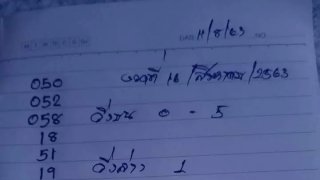 DATE 11/8/63 NO.
งวดที่ 16 /สิงหาคม/2563
050
052
058 วิ่งบน 0 - 5
18
51
19 วิ่งล่าง 1